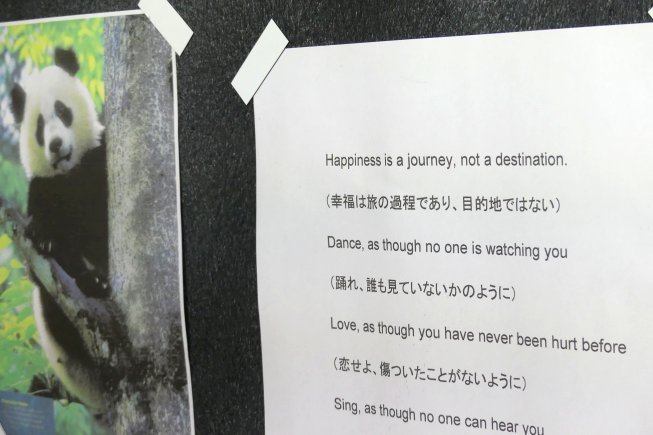 Happiness is a journey, not a destination.
(幸福は旅の過程であり、目的地ではない)
Dance, as though no one is watching you
(踊れ、誰も見ていないかのように)
Love, as though you have never been hurt before
(恋せよ、傷ついたことがないように)
Sing, as though no one can hear you